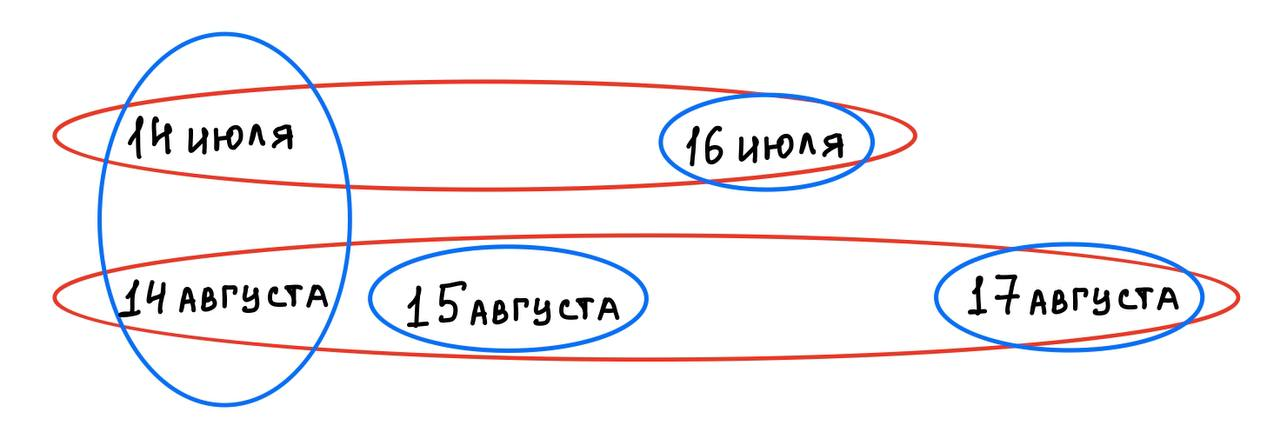 14 июля 16 июля
14 августа 15 августа 17 августа